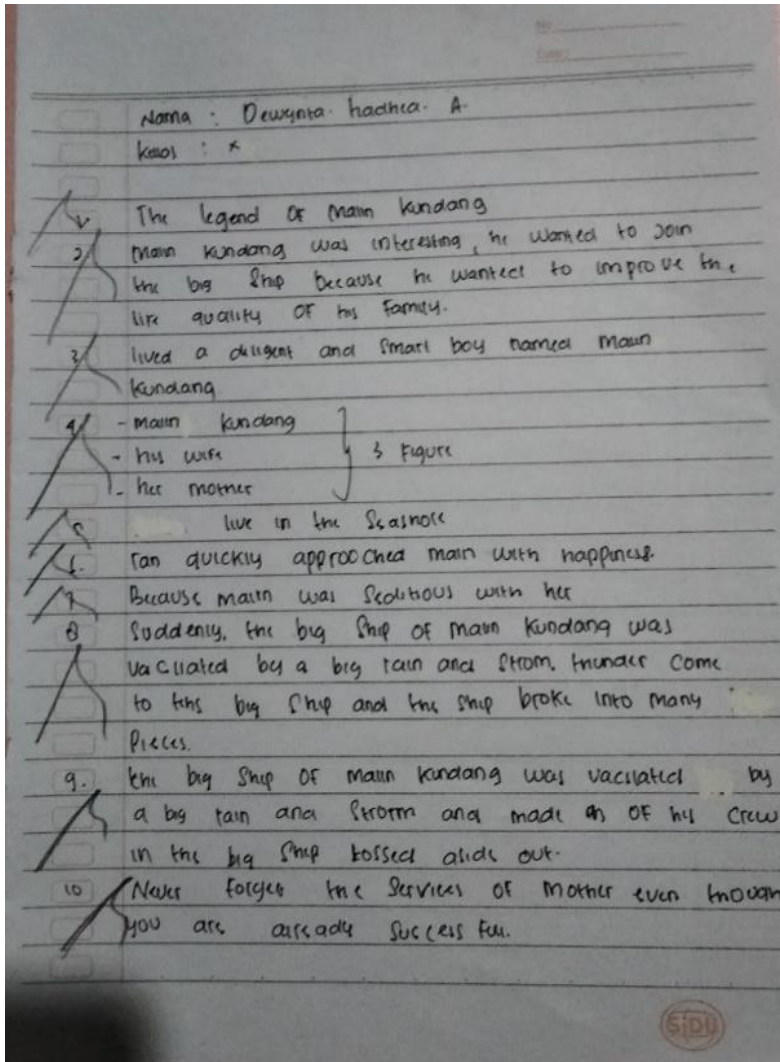 Nama : Dewynta. hadhea. A.
Kelas : X
1. The legend of malin kundang
2) malin kundang was interesting, he wanted to join
the big ship because he wanted to improve the
life quality of his family.
3 lived a diligent and smart boy named malin
kundang
4 - malin kundang
- his wife
- her mother
3 Figure
5 live in the Seashore
6. ran quickly approoched malin with happiness.
7 Because malin was seditious with her
8 Suddenly, the big ship of malin kundang was
vacilated by a big rain and strom, thunder come
to the big ship and the ship broke into many
pieces.
9. the big ship of malin kundang was vacilated by
a big rain and strorm and made of his crew
in the big ship tossed aside out.
10 Never forget the services of mother even though
you are already success ful.
SIDU